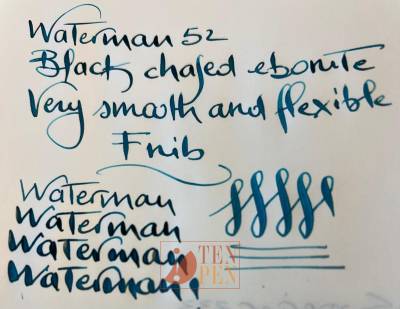 Waterman 52
Black chased ebonite
Very smooth and flexible
F nib
Waterman
Waterman
Waterman
Waterman!
TEN
PEN